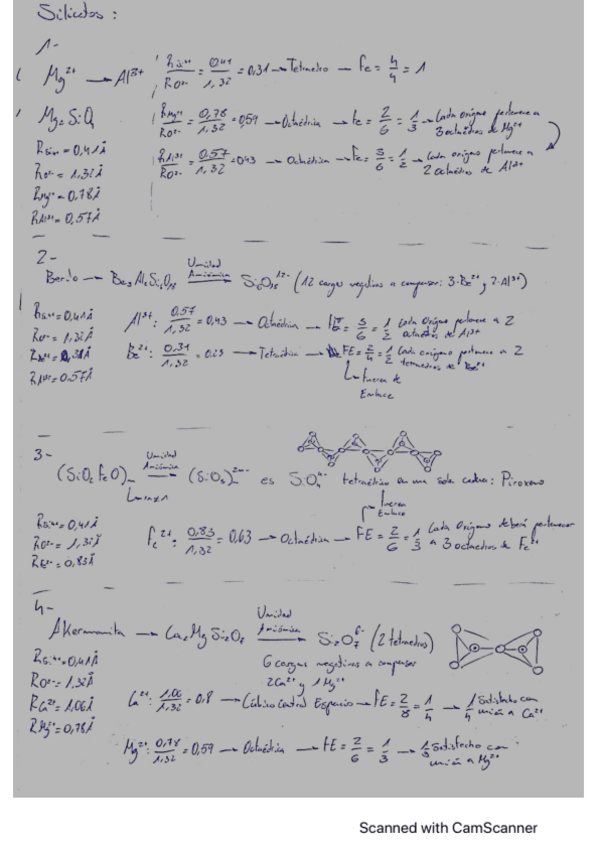 Silicatos :
1-
Mg²⁺ → Al³⁺
R Si⁴⁺ / R O²⁻ = 0,41 / 1,32 = 0,31 → Tetraedro → Fe = 4/4 = 1
Mg₂SiO₄
R Mg²⁺ / R O²⁻ = 0,78 / 1,32 = 0,59 → Octaédrica → Fe = 2/6 = 1/3 → Cada oxígeno pertenece a 3 octaedros de Mg²⁺
R Al³⁺ / R O²⁻ = 0.57 / 1,32 = 0,43 → Octaédrica → Fe = 3/6 = 1/2 → Cada oxígeno pertenece a 2 octaedros de Al³⁺
R Si⁴⁺ = 0,41Å
R O²⁻ = 1,32Å
R Mg²⁺ = 0,78Å
R Al³⁺ = 0,57Å
2-
Berilo → Be₃Al₂Si₆O₁₈ Unidad Aniónica → Si₆O₁₈¹²⁻ (12 cargas negativas a compensar: 3·Be²⁺ y 2·Al³⁺)
R Si⁴⁺ = 0,41Å
R O²⁻ = 1,32Å
R Be²⁺ = 0,31Å
R Al³⁺ = 0.57Å
Al³⁺ : 0.57 / 1,32 = 0,43 → Octaédrica → FE = 3/6 = 1/2 Cada oxígeno pertenece a 2 octaedros de Al³⁺
Be²⁺ : 0,31 / 1,32 = 0.23 → Tetraédrica → FE = 2/4 = 1/2 Cada oxígeno pertenece a 2 tetraedros de Be²⁺
Fuerza de Enlace
3-
(SiO₂FeO) Unidad Aniónica → (SiO₃)ₙ²ⁿ⁻ es SiO₄⁴⁻ tetraédrico en una sola cadena : Piroxeno
Fuerza Enlace
R Si⁴⁺ = 0,41Å
R O²⁻ = 1,32Å
R Fe²⁺ = 0,83Å
Fe²⁺ : 0,83 / 1,32 = 0,63 → Octaédrica → FE = 2/6 = 1/3 Cada Oxígeno deberá pertenecer a 3 octaedros de Fe²⁺
4-
Akermanita → Ca₂MgSi₂O₇ Unidad Aniónica → Si₂O₇⁶⁻ (2 tetraedros)
6 cargas negativas a compensar
2Ca²⁺ y 1Mg²⁺
R Si⁴⁺ = 0,41Å
R O²⁻ = 1.32Å
R Ca²⁺ = 1.06Å
R Mg²⁺ = 0,78Å
Ca²⁺ : 1.06 / 1,32 = 0.8 → Cúbica Central Espacio → FE = 2/8 = 1/4 → 1/4 Satisfecho con unión a Ca²⁺
Mg²⁺ : 0,78 / 1,32 = 0,59 → Octaédrica → FE = 2/6 = 1/3 → 1/3 Satisfecho con unión a Mg²⁺
Scanned with CamScanner